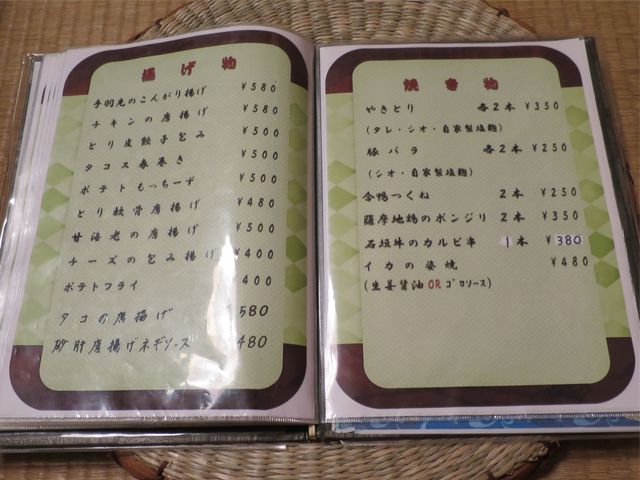 揚げ物
手羽先のこんがり揚げ ¥580
チキンの唐揚げ ¥580
とり皮餃子包み ¥500
タコス春巻き ¥500
ポテトもっちーず ¥500
とり軟骨唐揚げ ¥480
甘海老の唐揚げ ¥500
チーズの包み揚げ ¥400
ポテトフライ ¥400
タコの唐揚げ ¥580
砂肝唐揚げネギソース ¥480
焼き物
やきとり 各2本 ¥350
(タレ・シオ・自家製塩麹)
豚バラ 各2本 ¥250
(シオ・自家製塩麹)
合鴨つくね 2本 ¥250
薩摩地鶏のボンジリ 2本 ¥350
石垣牛のカルビ串 1本 ¥380
イカの姿焼 ¥480
(生姜醤油 OR ゴロソース)